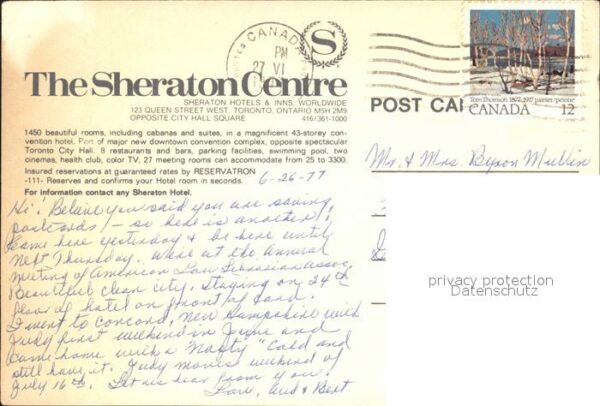 CANADA
PM
27 VI
S
The Sheraton Centre
SHERATON HOTELS & INNS, WORLDWIDE
123 QUEEN STREET WEST, TORONTO, ONTARIO M5H 2M9
OPPOSITE CITY HALL SQUARE 416/361-1000
POST CAR
Tom Thomson 1877-1917 painter/peintre
CANADA 12
1450 beautiful rooms, including cabanas and suites, in a magnificent 43-storey con-
vention hotel. Part of major new downtown convention complex, opposite spectacular
Toronto City Hall. 8 restaurants and bars, parking facilities, swimming pool, two
cinemas, health club, color TV, 27 meeting rooms can accommodate from 25 to 3300.
Insured reservations at guaranteed rates by RESERVATRON
-111- Reserves and confirms your Hotel room in seconds.
For information contact any Sheraton Hotel.
6-26-77
Hi! Believe you said you are saving
postcards! - so here is another!
Came here yesterday & be here until
next Thursday. We're at the annual
meeting of American Law Librarian Assoc.
Beautiful clean city. Staying on 24th
floor of hotel on front of card.
I went to Concord, New Hampshire with
Judy first weekend in June and
came home with a "Nasty" cold and
still have it. Judy moves weekend of
July 16th. Let us hear from you.
Love, and Bert
Mr. & Mrs Byron Mullin
privacy protection
Datenschutz